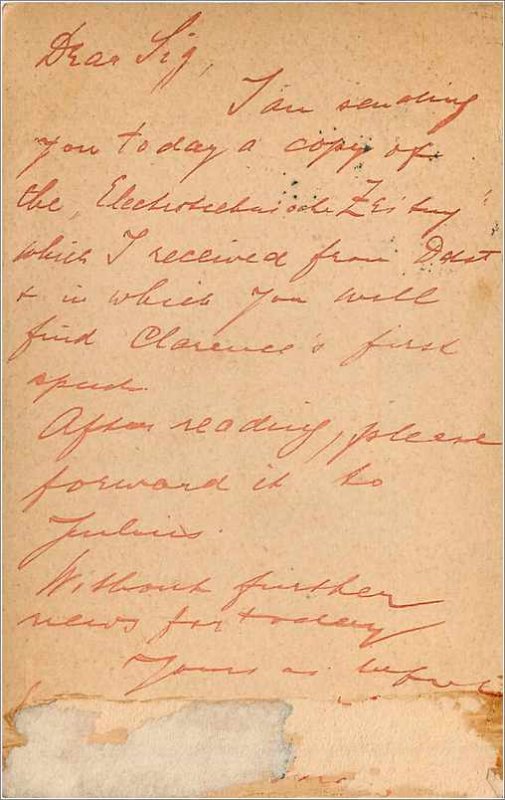 Dear Sig,
I am sending
you today a copy of
the „Electrotechnische Zeitung"
which I received from Ddst
& in which you will
find Clarence's first
speech.
After reading, please
forward it to
Julius.
Without further
news for today
Yours as before